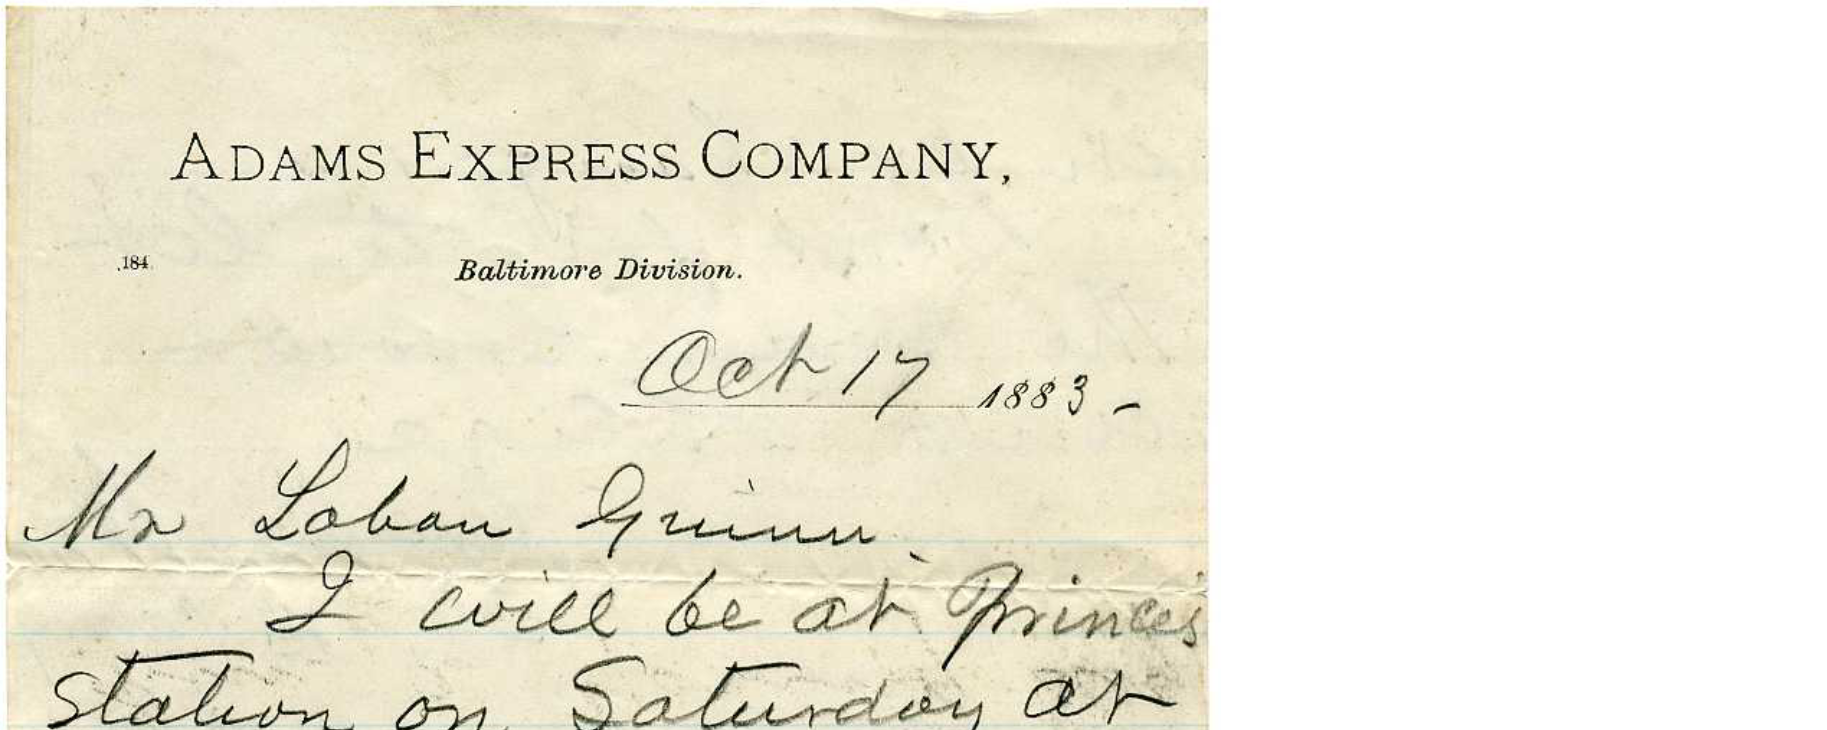 ADAMS EXPRESS COMPANY,
184
Baltimore Division.
Oct 17 1883 -
Mr Laban Guinn.
I will be at Princes
Station on Saturday at